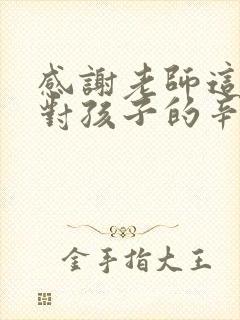 感謝老師這
對孩子的辛
金手指大王